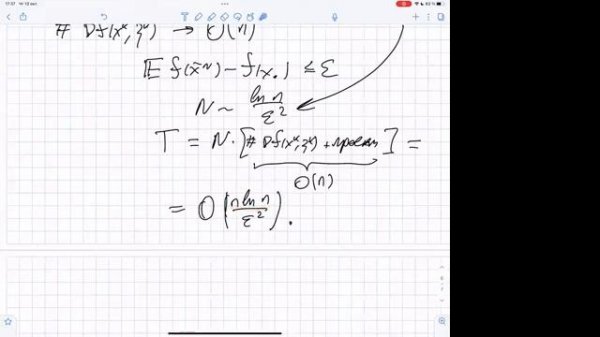 # ∇f(x^k, ξ^k) → O(n)
E f(x̄^N) − f(x_*) ≤ ε
N ~ ln n / ε²
T = N · [# ∇f(x^k, ξ^k) + проекц] =
O(n)
= O(n ln n / ε²).